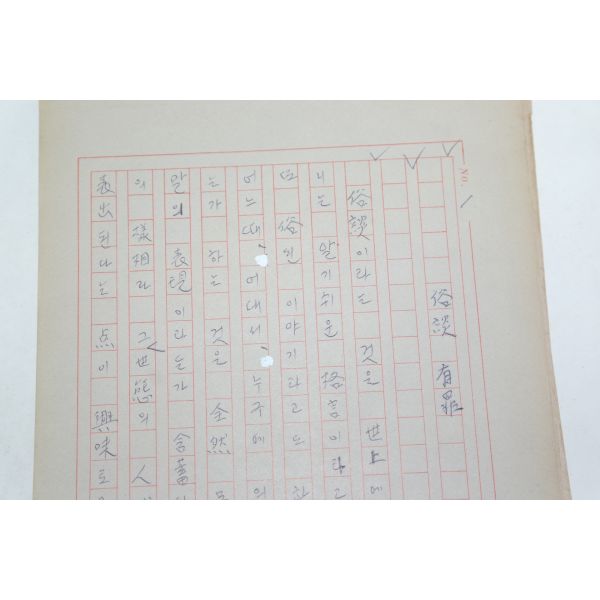 No.
俗談 有罪
俗談이라는 것을 世上에
니는 알기쉬운 格言이라고
俗된 이야기라고도 하
어느때 어대서 누구에 의
는가 하는 것을 全然 모
말의 表現이라는가 含蓄
의 樣相과 그 世態의 人
表出된다는 点이 興味로